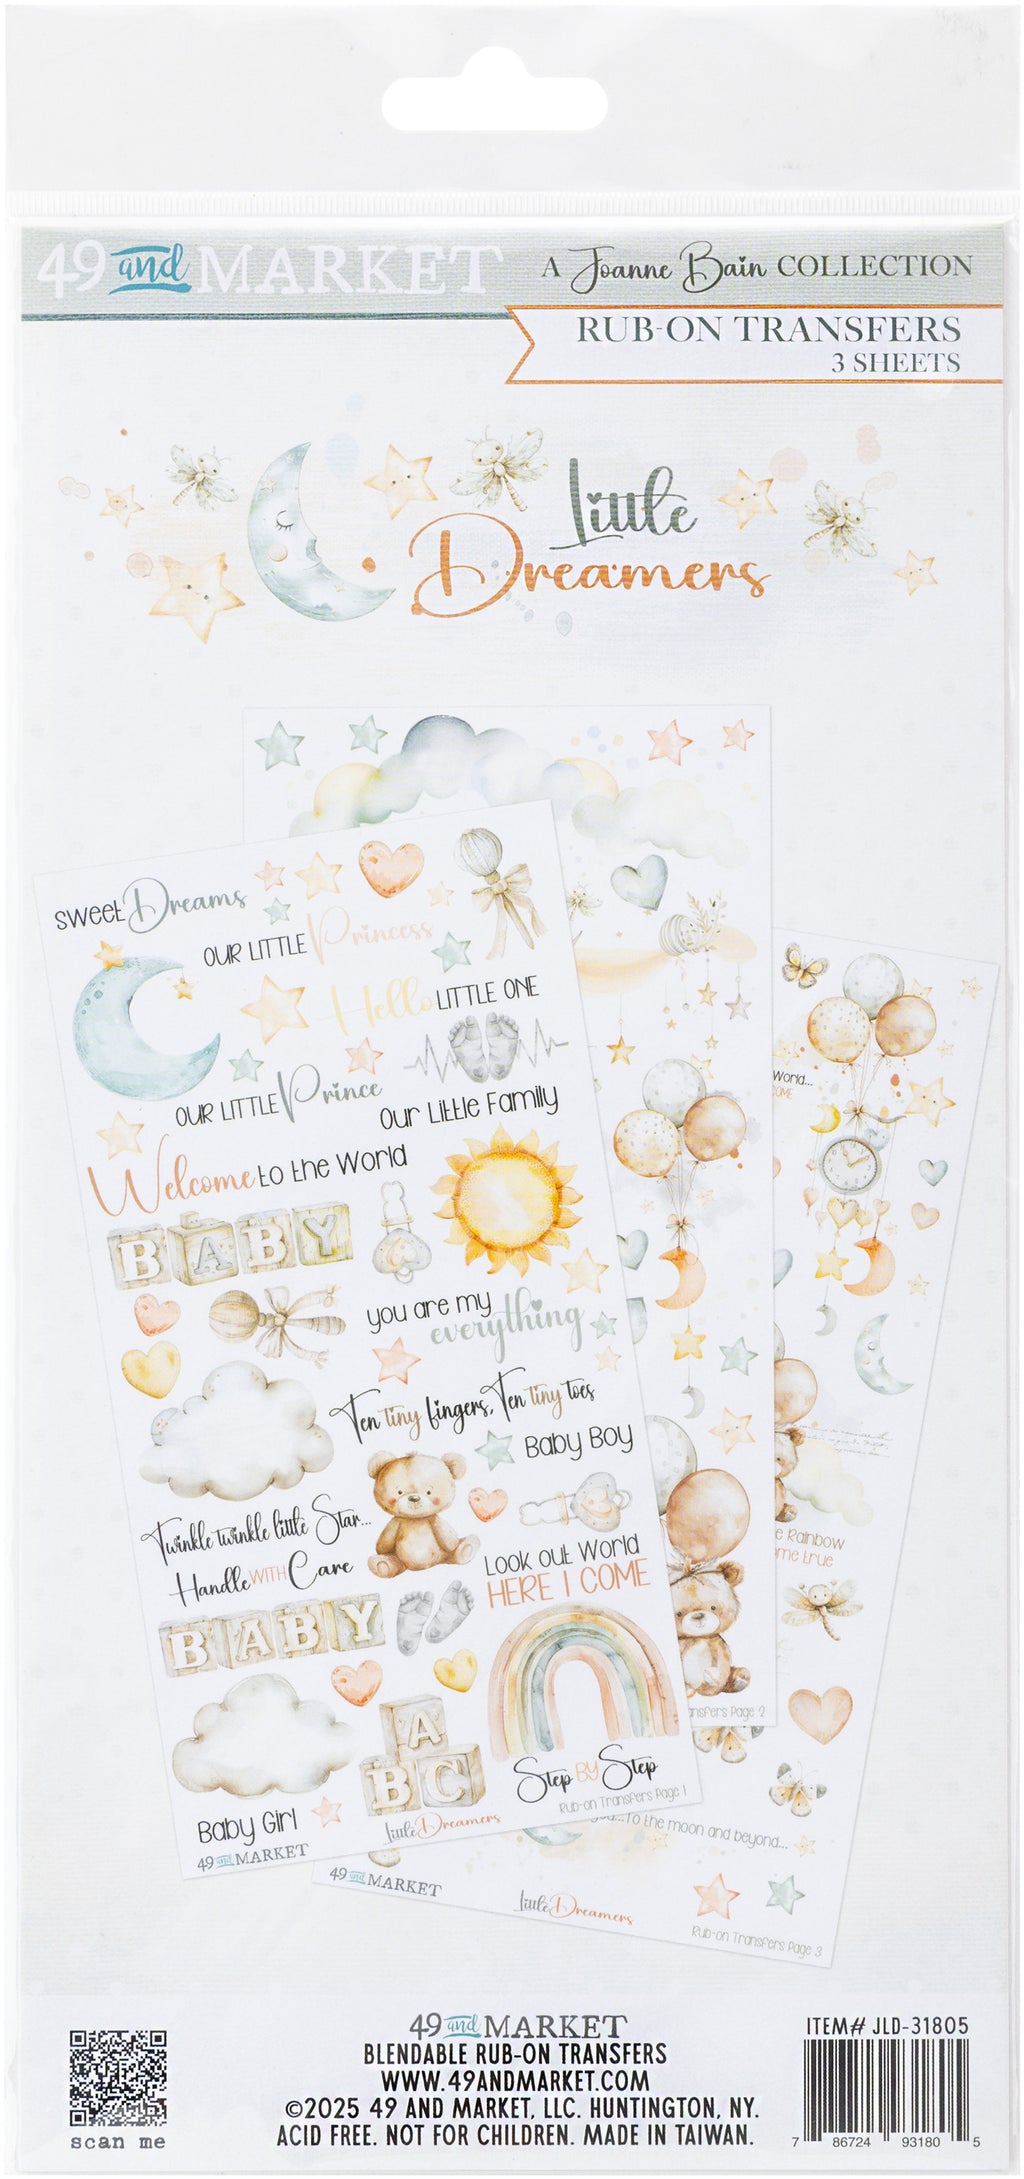 49 and MARKET
A Joanne Bain COLLECTION
RUB-ON TRANSFERS
3 SHEETS
Little
Dreamers
sweet Dreams
OUR LITTLE Princess
Hello LITTLE ONE
OUR LITTLE Prince
Our Little Family
Welcome to the World
BABY
you are my
everything
Ten tiny fingers, Ten tiny toes
Baby Boy
Twinkle twinkle little Star...
Handle WITH Care
Look out World
HERE I COME
BABY
A
BC
Step BY Step
Rub-on Transfers Page 1
Baby Girl
Little Dreamers
49 and MARKET
World...
COME
Rainbow
true
Transfers Page 2
...To the moon and beyond...
49 and MARKET
Little Dreamers
Rub-on Transfers Page 3
49 and MARKET
BLENDABLE RUB-ON TRANSFERS
WWW.49ANDMARKET.COM
©2025 49 AND MARKET, LLC. HUNTINGTON, NY.
ACID FREE. NOT FOR CHILDREN. MADE IN TAIWAN.
scan me
ITEM# JLD-31805
7 86724 93180 5